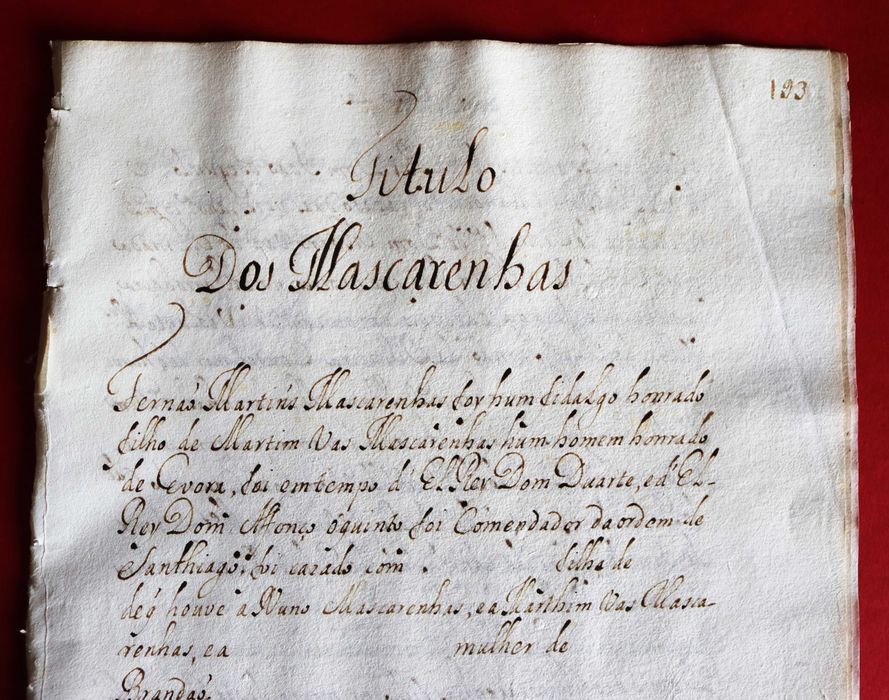 193
Titulo
Dos Mascarenhas
Fernaõ Martins Mascarenhas foy hum fidalgo honrado
filho de Martim Vas Mascarenhas hum homem honrado
de Evora, foi em tempo d' El Rey Dom Duarte, e d' El-
Rey Dom Affonço o quinto foi Comendador da ordem de
Santhiago, foi cazado com filha de
de q̃ houve a Nuno Mascarenhas, e a Marthim Vas Masca-
renhas, e a mulher de
Brandaõ